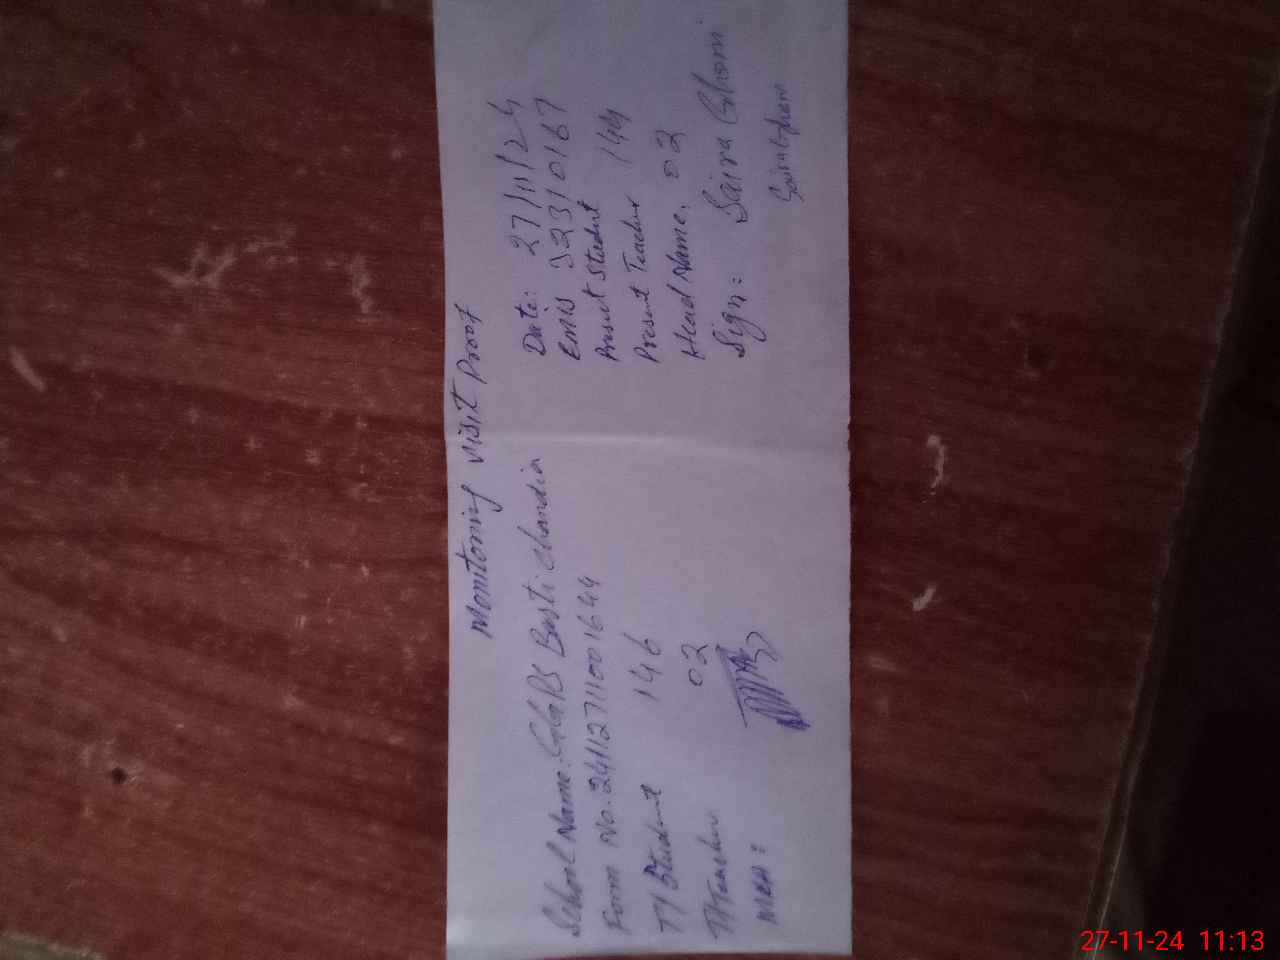 Monitoring visit Proof
School Name: GGPS Basti chandia
Date: 27/11/24
Form No. 2411271001644
Emis 32310167
T/Student 146
Present Student 144
T/Teacher 02
Present Teacher 02
MEA:
Head Name. Saira
Sign:
27-11-24 11:13